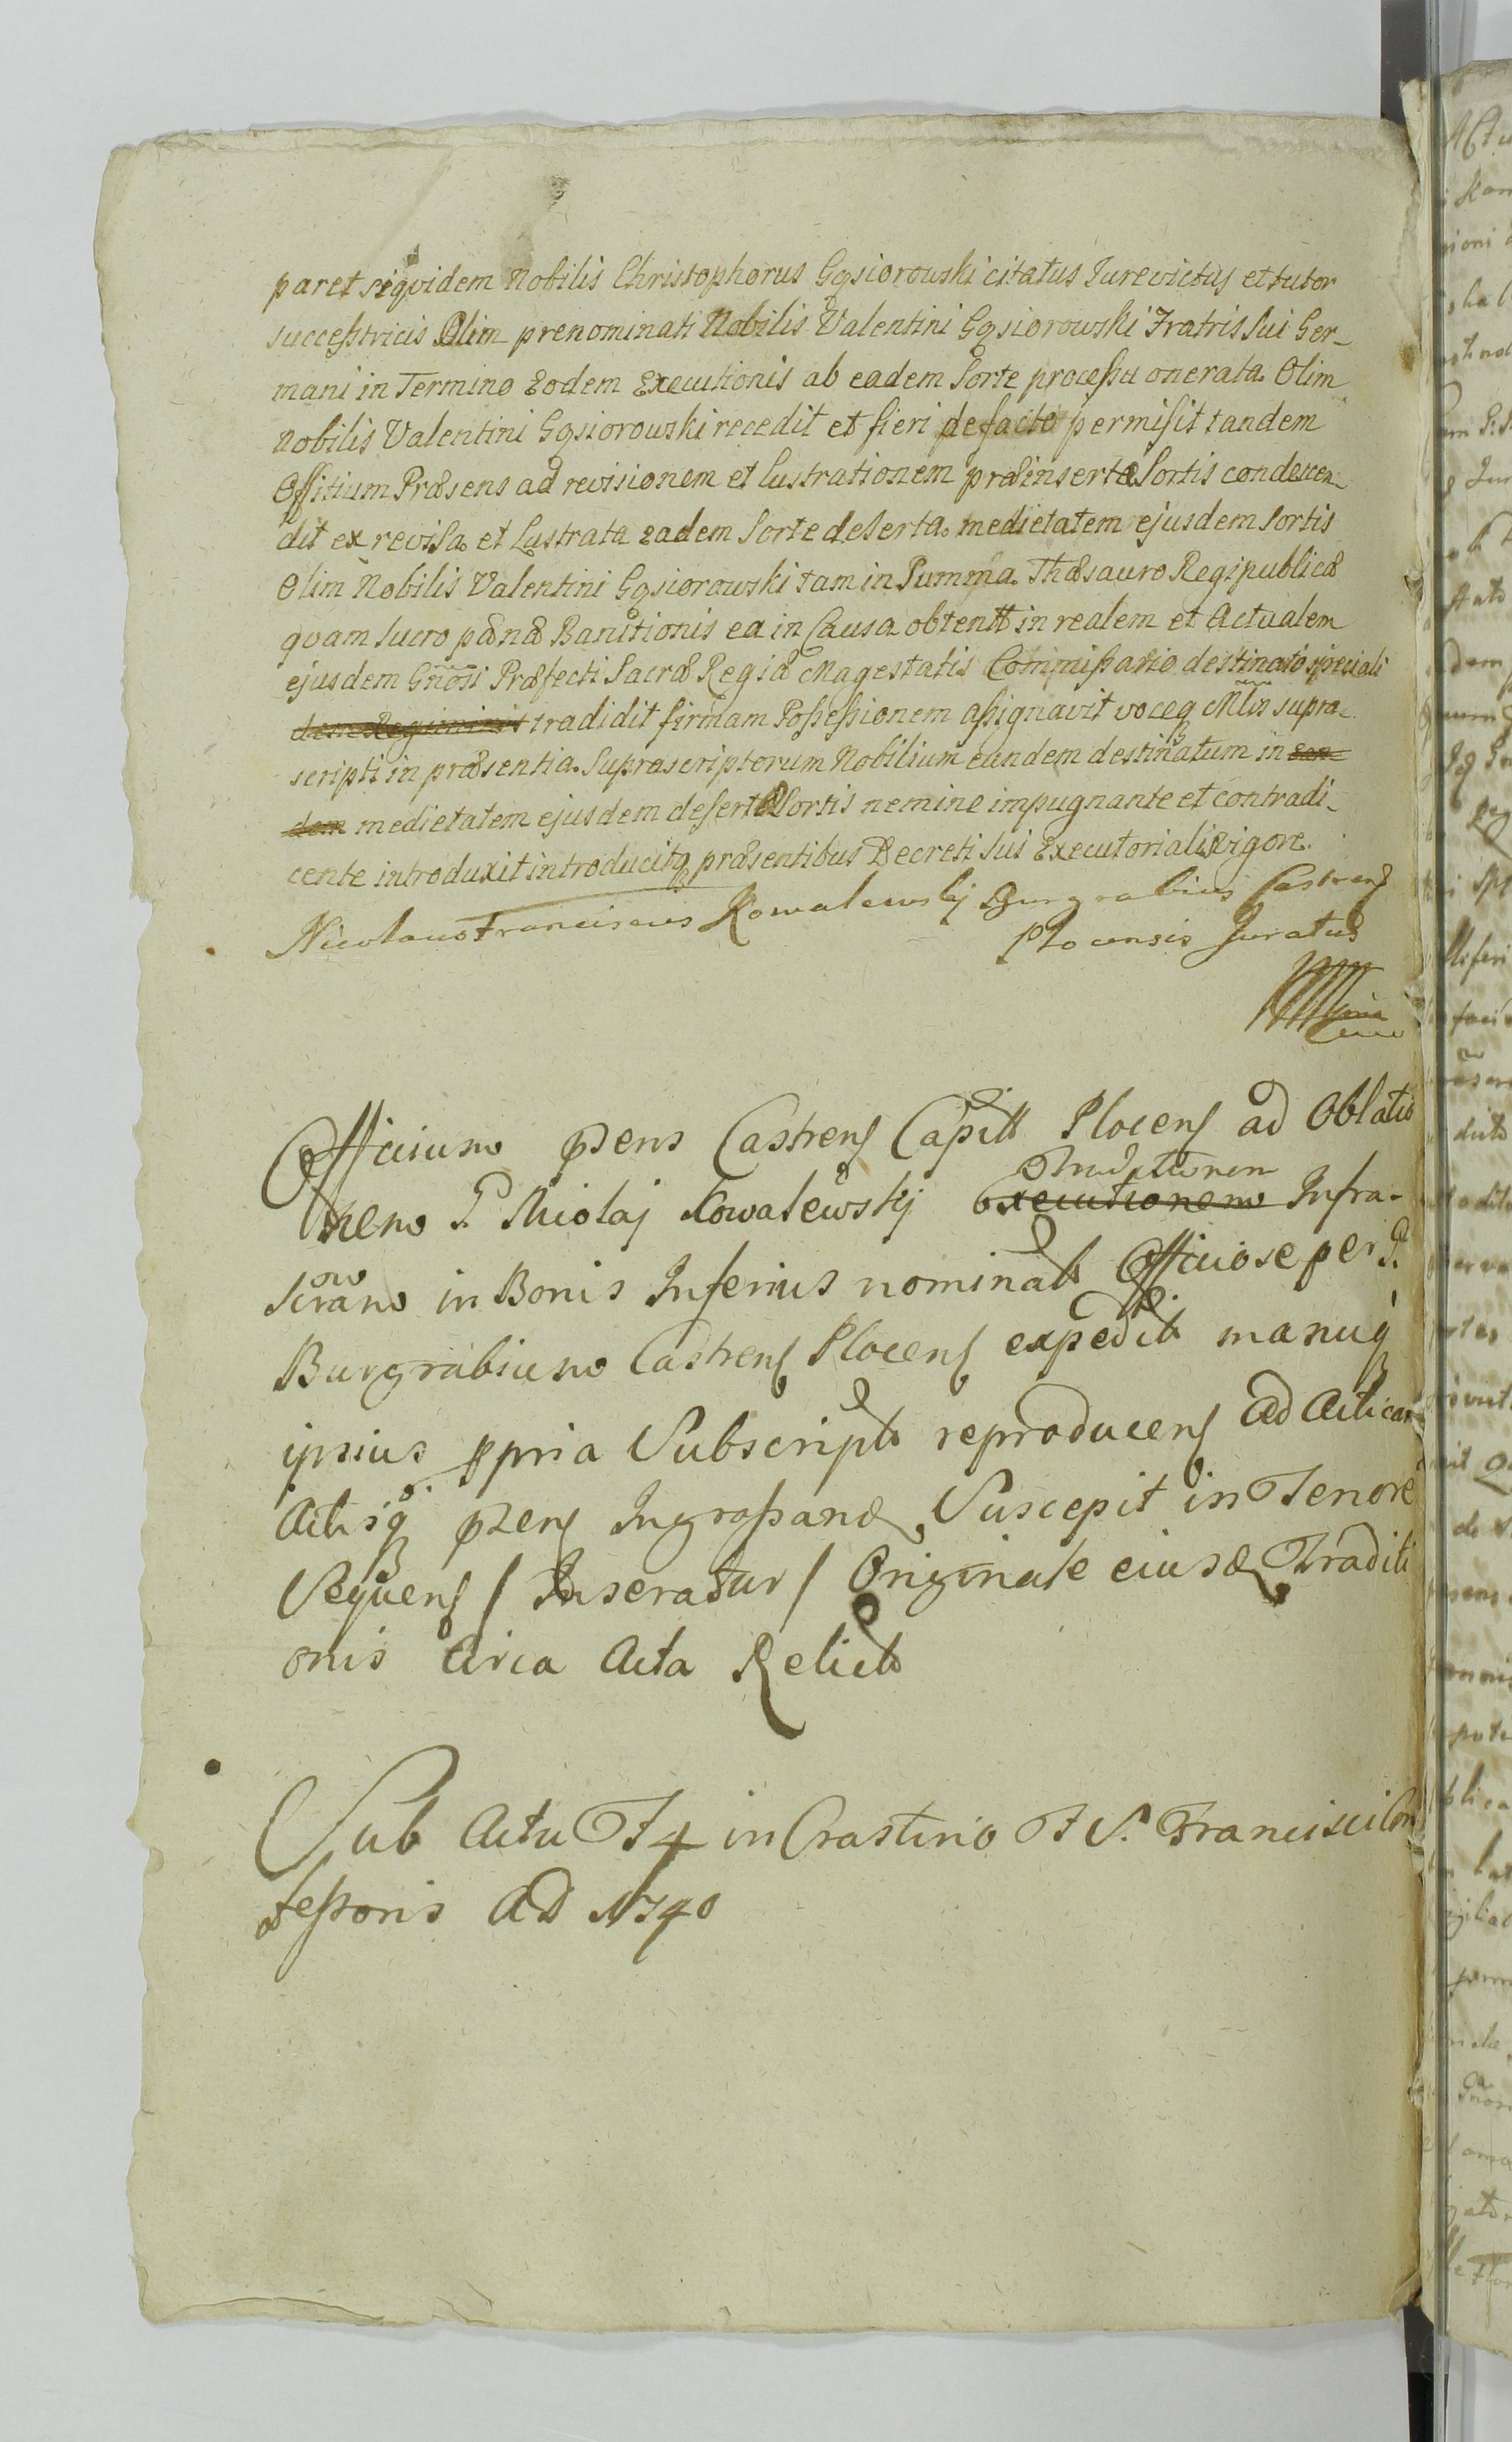 paret siqvidem Nobilis Christophorus Gąsiorowski citatus Jurevictus et tutor
successtricis Olim prenominati Nobilis Valentini Gąsiorowski Fratris Sui Ger-
mani in Termino Eodem Executionis ab eadem Sorte processu onerata Olim
Nobilis Valentini Gąsiorowski recedit et fieri de facto permisit tandem
Offitium Præsens ad revisionem et lustrationem præinsertæ Sortis condescen-
dit ex revisa et Lustrata eadem Sorte deserta medietatem ejusdem Sortis
Olim Nobilis Valentini Gąsiorowski tam in Summa Thæsauro Regipublicæ
qvam lucro pænæ Banitionis ea in Causa obtent in realem et Actualem
ejusdem Gnosi Præfecti Sacræ Regiæ Magestatis Commissario destinato speciali
tradidit firmam Possessionem assignavit voceq Mlis supra-
scripti in præsentia Suprascriptorum Nobilium eundem destinatum in ean-
dem medietatem ejusdem desertæ Sortis nemine impugnante et contradi-
cente introduxit introducitq præsentibus Decreti Sui Executorialis vigore.
Nicolaus Franciscus Kowalewskj Burgrabius Castrens
Plocensis Juratus
Officium pzens Castrens Capitt Plocens ad Oblatio
nem P. Mikołaj Kowalewskj executionem Traditionem Infra-
scram in Bonis Inferius nominatt Officiose per P.
Burgrabium Castrens Plocens expedit manuq
ipsius ppria Subscript reproducens ad Actican
Actisq pzens Ingrossand Suscepit in Tenore
Sequens / Inseratur / Originale eiusd Traditi
onis circa Acta Relict
Sub Actu F 4 in Crastino F S. Francisci Con
fessoris AD 1740